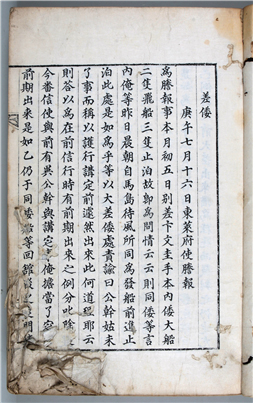 差倭
庚午七月十六日東萊府使謄報
爲謄報事本月初五日別差卞文圭手本內倭大船
二隻飛船三隻止泊故卽爲問情云云則同倭等言
內俺等昨日晨朝自馬島待風所同爲發船前進止
泊此處是如爲乎等以大差倭處責諭曰公幹姑未
了事而稱以護行講定前遽然出來此何道理耶云
則答以爲在前信行時有前期出來之例分叱除
今番信使與前有異公幹與講定
俺擔當了
前期出來是如乙仍于同倭
等回